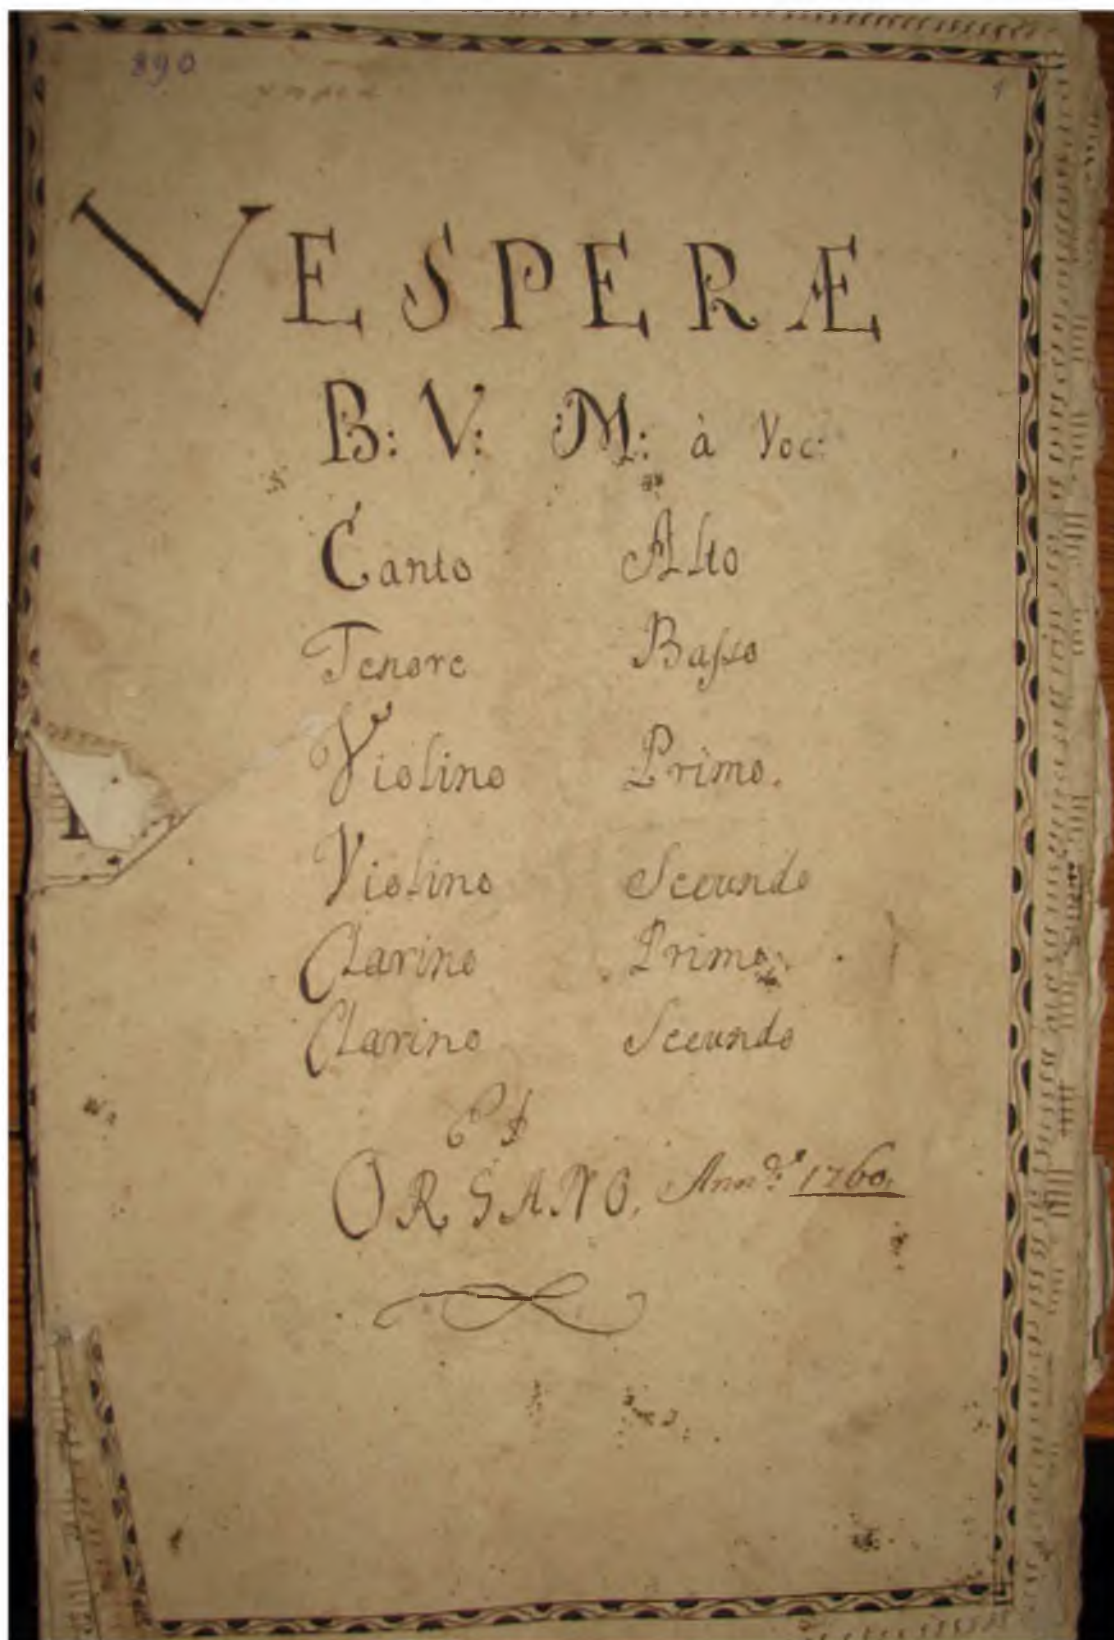 890
1
VESPERÆ
B: V: M: à Voc:
Canto Alto
Tenore Baſso
Violino Primo.
Violino Secundo
Clarino Primo.
Clarino Secundo
et
ORGANO, Ann⁰: 1760.